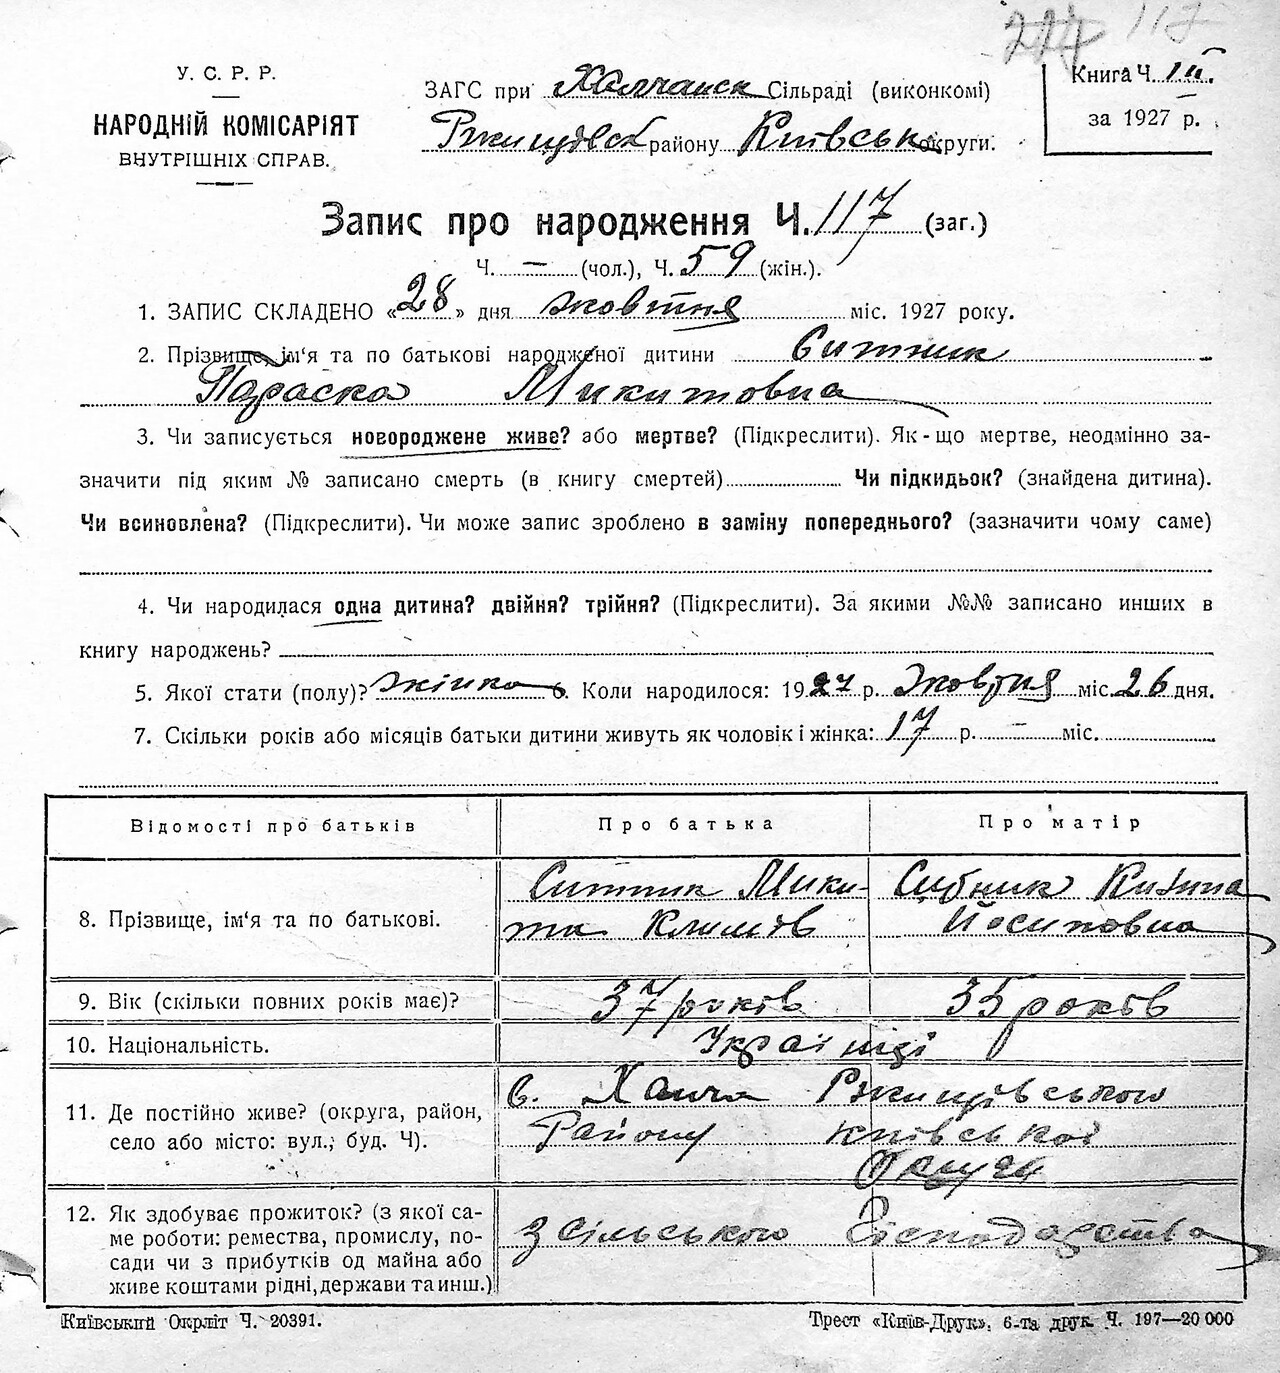 117
У. С. Р. Р.
НАРОДНІЙ КОМІСАРІЯТ
ВНУТРІШНІХ СПРАВ.
ЗАГС при Халчанск Сільраді (виконкомі)
Ржищівск району Київськ округи.
Книга Ч. III.
за 1927 р.
Запис про народження Ч. 117 (заг.)
Ч. — (чол.), Ч. 59 (жін.).
1. ЗАПИС СКЛАДЕНО «28» дня жовтня міс. 1927 року.
2. Прізвище, ім‘я та по батькові народженої дитини Ситник
Параска Микитовна
3. Чи записується новороджене живе? або мертве? (Підкреслити). Як-що мертве, неодмінно за-
значити під яким № записано смерть (в книгу смертей) Чи підкидьок? (знайдена дитина).
Чи всиновлена? (Підкреслити). Чи може запис зроблено в заміну попереднього? (зазначити чому саме)
4. Чи народилася одна дитина? двійня? трійня? (Підкреслити). За якими №№ записано инших в
книгу народжень?
5. Якої стати (полу)? жінка. Коли народилося: 1927 р. Жовтня міс. 26 дня.
7. Скільки років або місяців батьки дитини живуть як чоловік і жінка: 17 р. — міс.
Відомості про батьків Про батька Про матір
8. Прізвище, ім‘я та по батькові. Ситник Мики-
та Климів
Ситник
Йосиповна
9. Вік (скільки повних років має)? 37 років 35 років
10. Національність. Українці
11. Де постійно живе? (округа, район,
село або місто: вул., буд. Ч).
с. Халча Ржищівського
Району київської
Округи
12. Як здобуває прожиток? (з якої са-
ме роботи: ремества, промислу, по-
сади чи з прибутків од майна або
живе коштами рідні, держави та инш.)
З сільського Господарства
Київський Окрліт Ч. 20391.
Трест «Київ-Друк», 6-та друк. Ч. 197—20 000